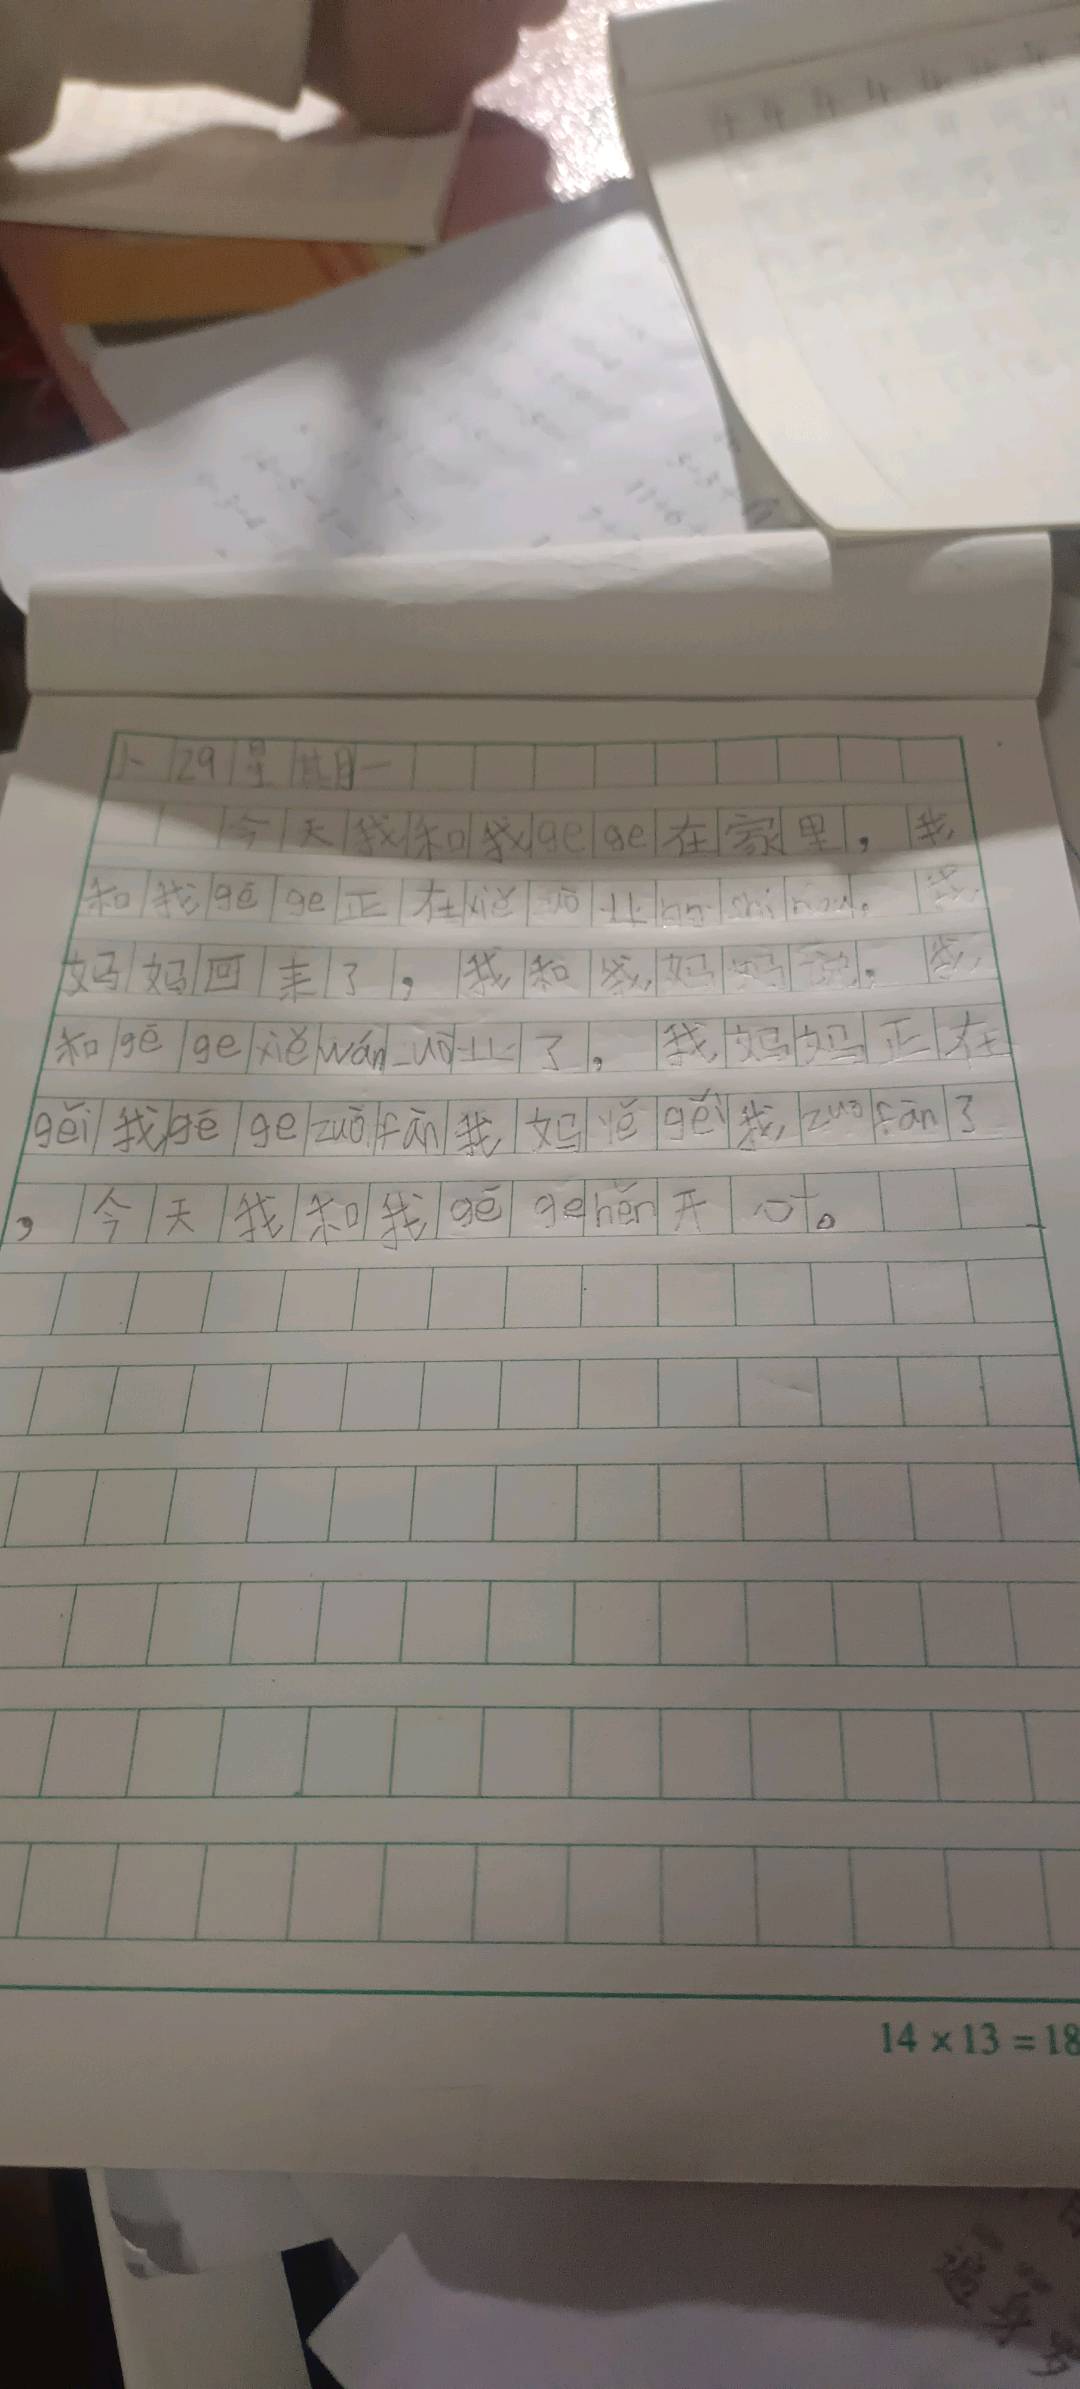 29星期一
今天我和我gege在家里，我
和我gēge正在xiězuò业nà shí hòu。我
妈妈回来了，我和我妈妈说。我
和gēgexiěwánzuò业了，我妈妈正在
gěi我gēgezuōfān我妈yěgěi我zuōfān了
，今天我和我gēgehěn开心。
14×13=18